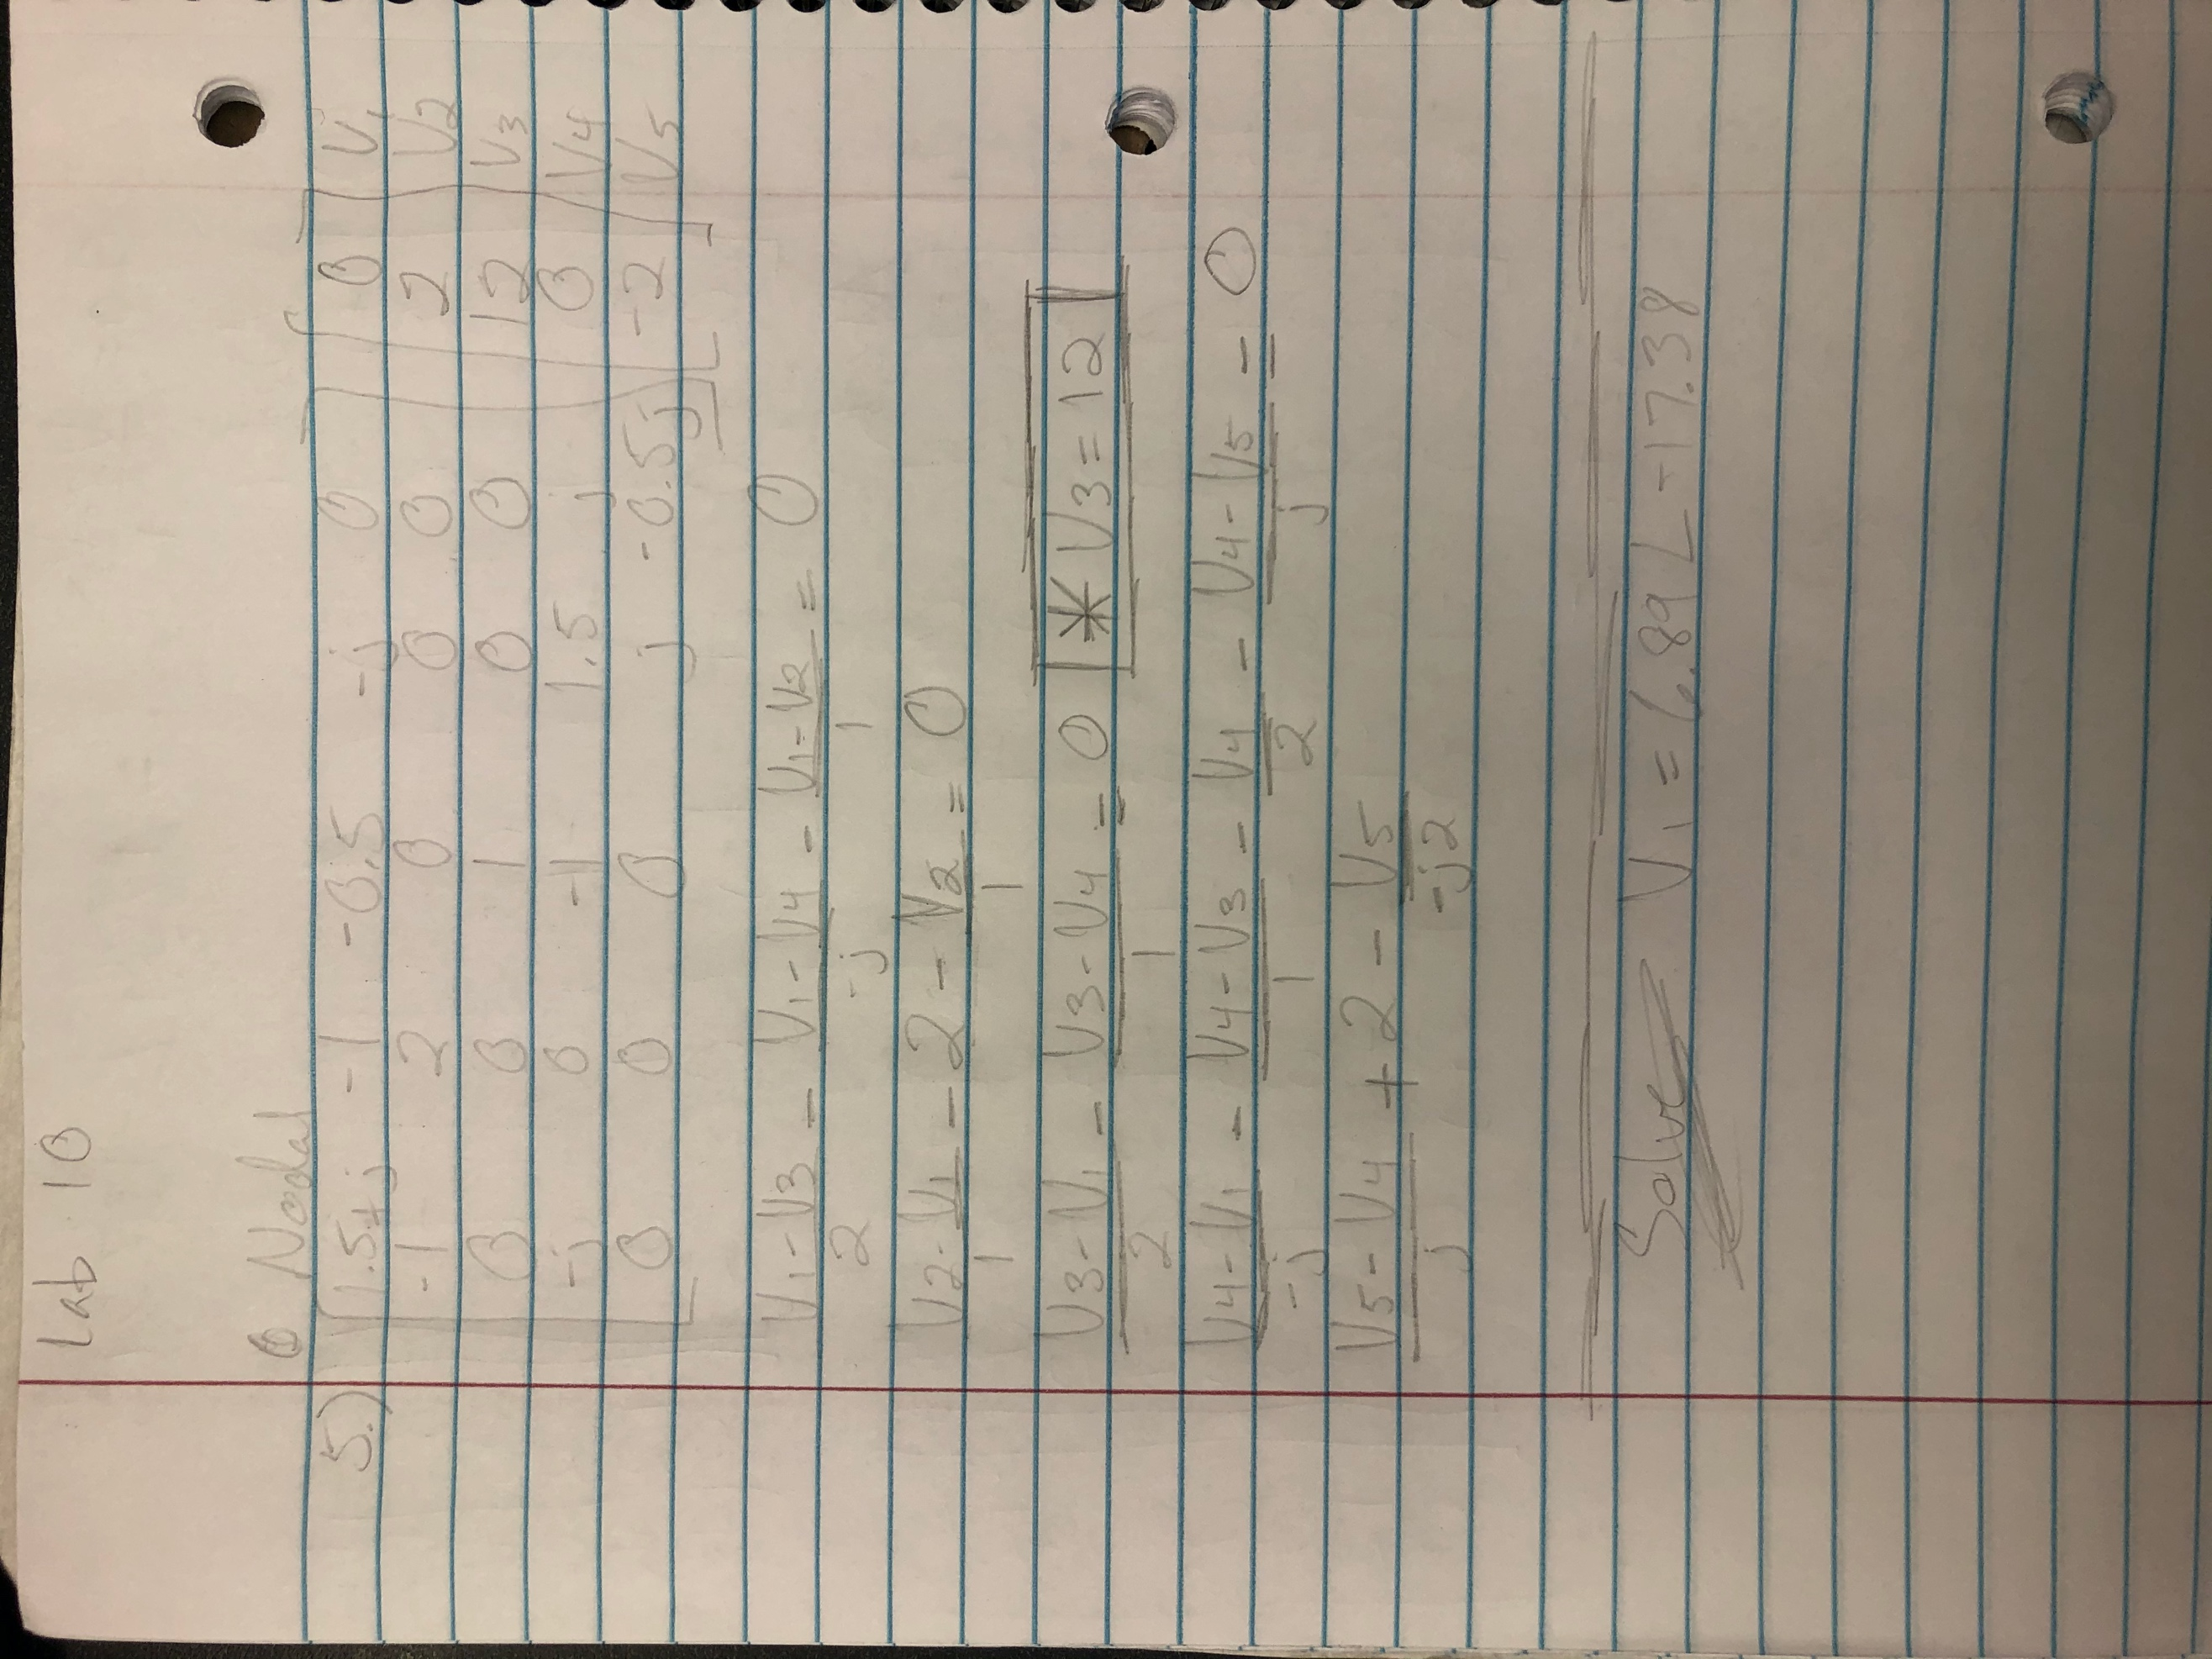 Lab 10
5.) Nodal
1.5+j -1 -0.5 -j 0 0 V1
-1 2 0 0 0 2 V2
0 0 1 0 0 12 V3
-j 0 -1 1.5 j 0 V4
0 0 0 j -0.5j -2 V5
V1-V3/2 - V1-V4/-j - V1-V2/1 = 0
V2-V1/1 - 2 - V2/1 = 0
V3-V1/2 - V3-V4/1 = 0 * V3=12
V4-V1/-j - V4-V3/1 - V4/2 - V4-V5/j = 0
V5-V4/j + 2 - V5/-j2
Solve V1 = 6.89 ∠-17.38